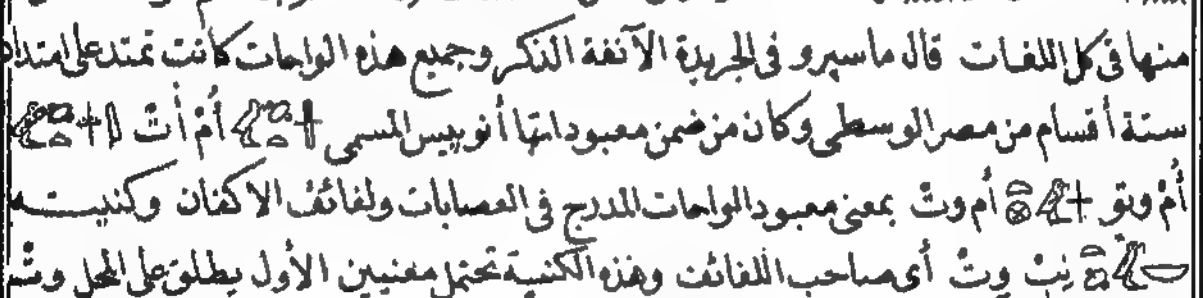 منها في كل اللغات قال ماسبرو في الجريدة الآنفة الذكر وجميع هذه الواحات كانت تمتد على امتداد
ستة أقسام من مصر الوسطى وكان من ضمن معبوداتها أنوبيس المسمى أُمْ أَتْ
أُمْ وتو أم وتْ بمعنى معبود الواحات المدرج في العصابات ولفائف الاكفان وكنيسته
نِبْ وِتْ أى صاحب اللفائف وهذه الكنية تحتمل معنيين الأول يطلق على المحل